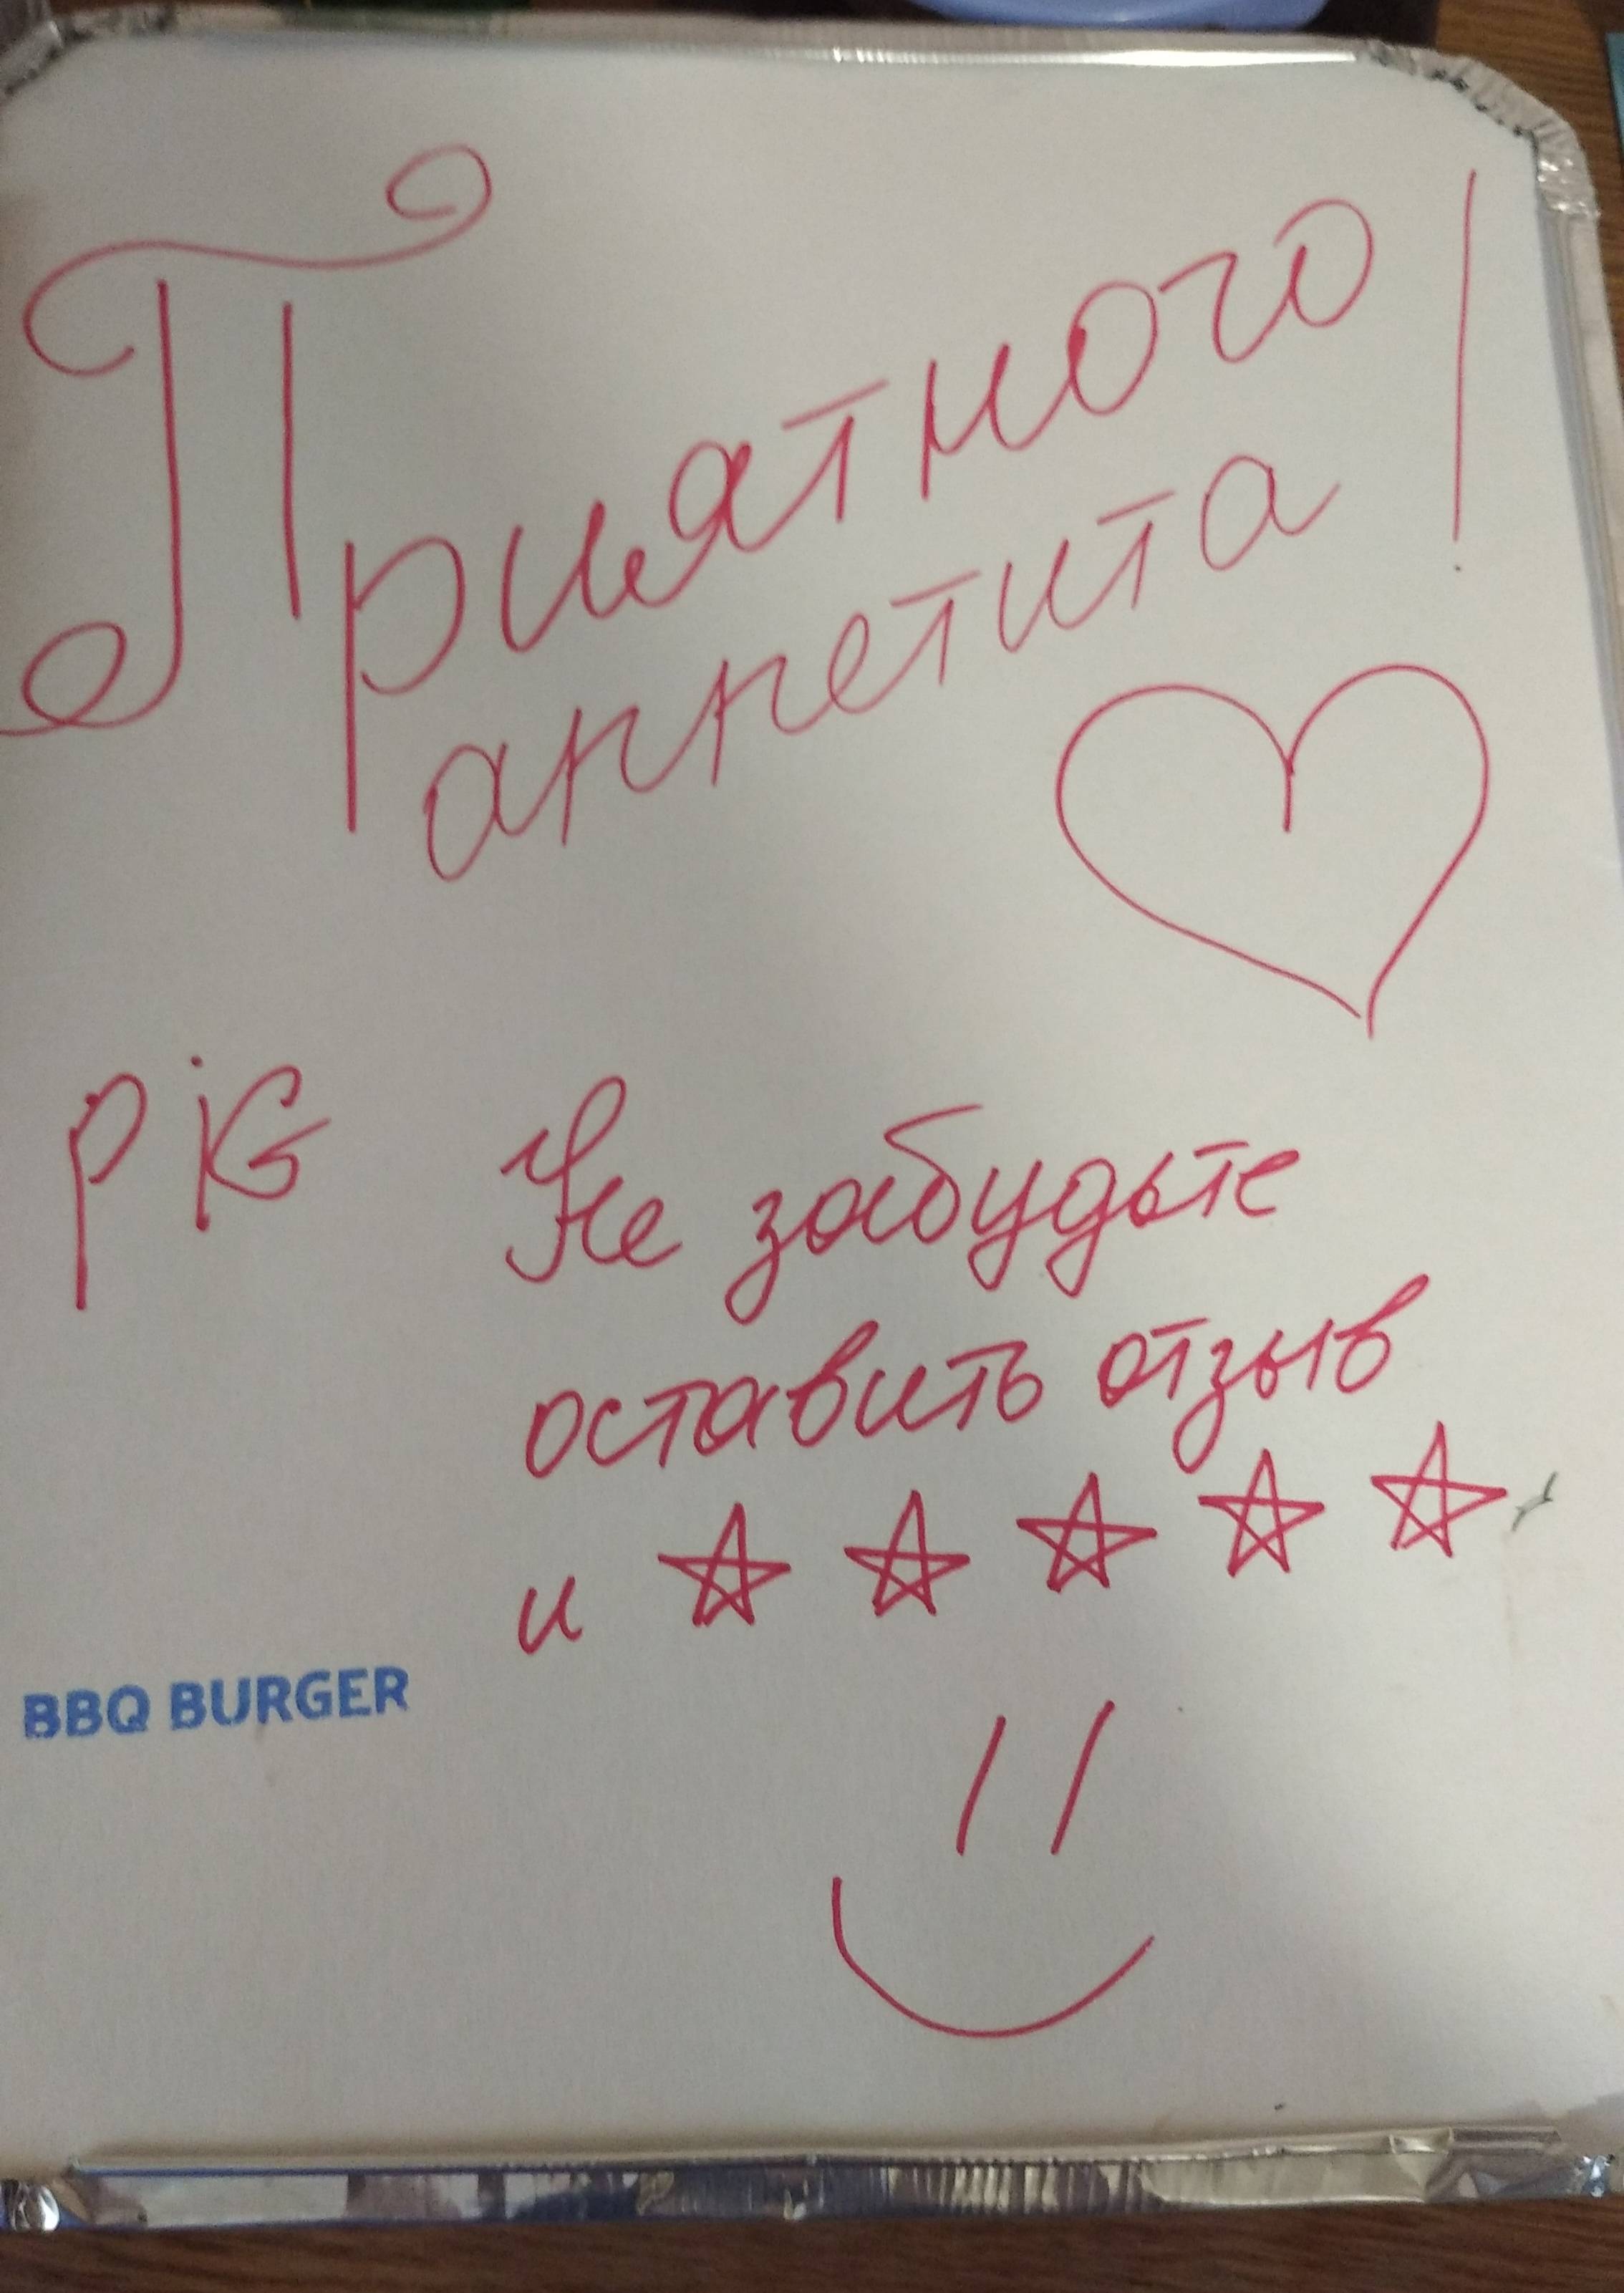 Приятного
аппетита!
PiG
Не забудьте
оставить отзыв
и ☆ ☆ ☆ ☆ ☆
BBQ BURGER